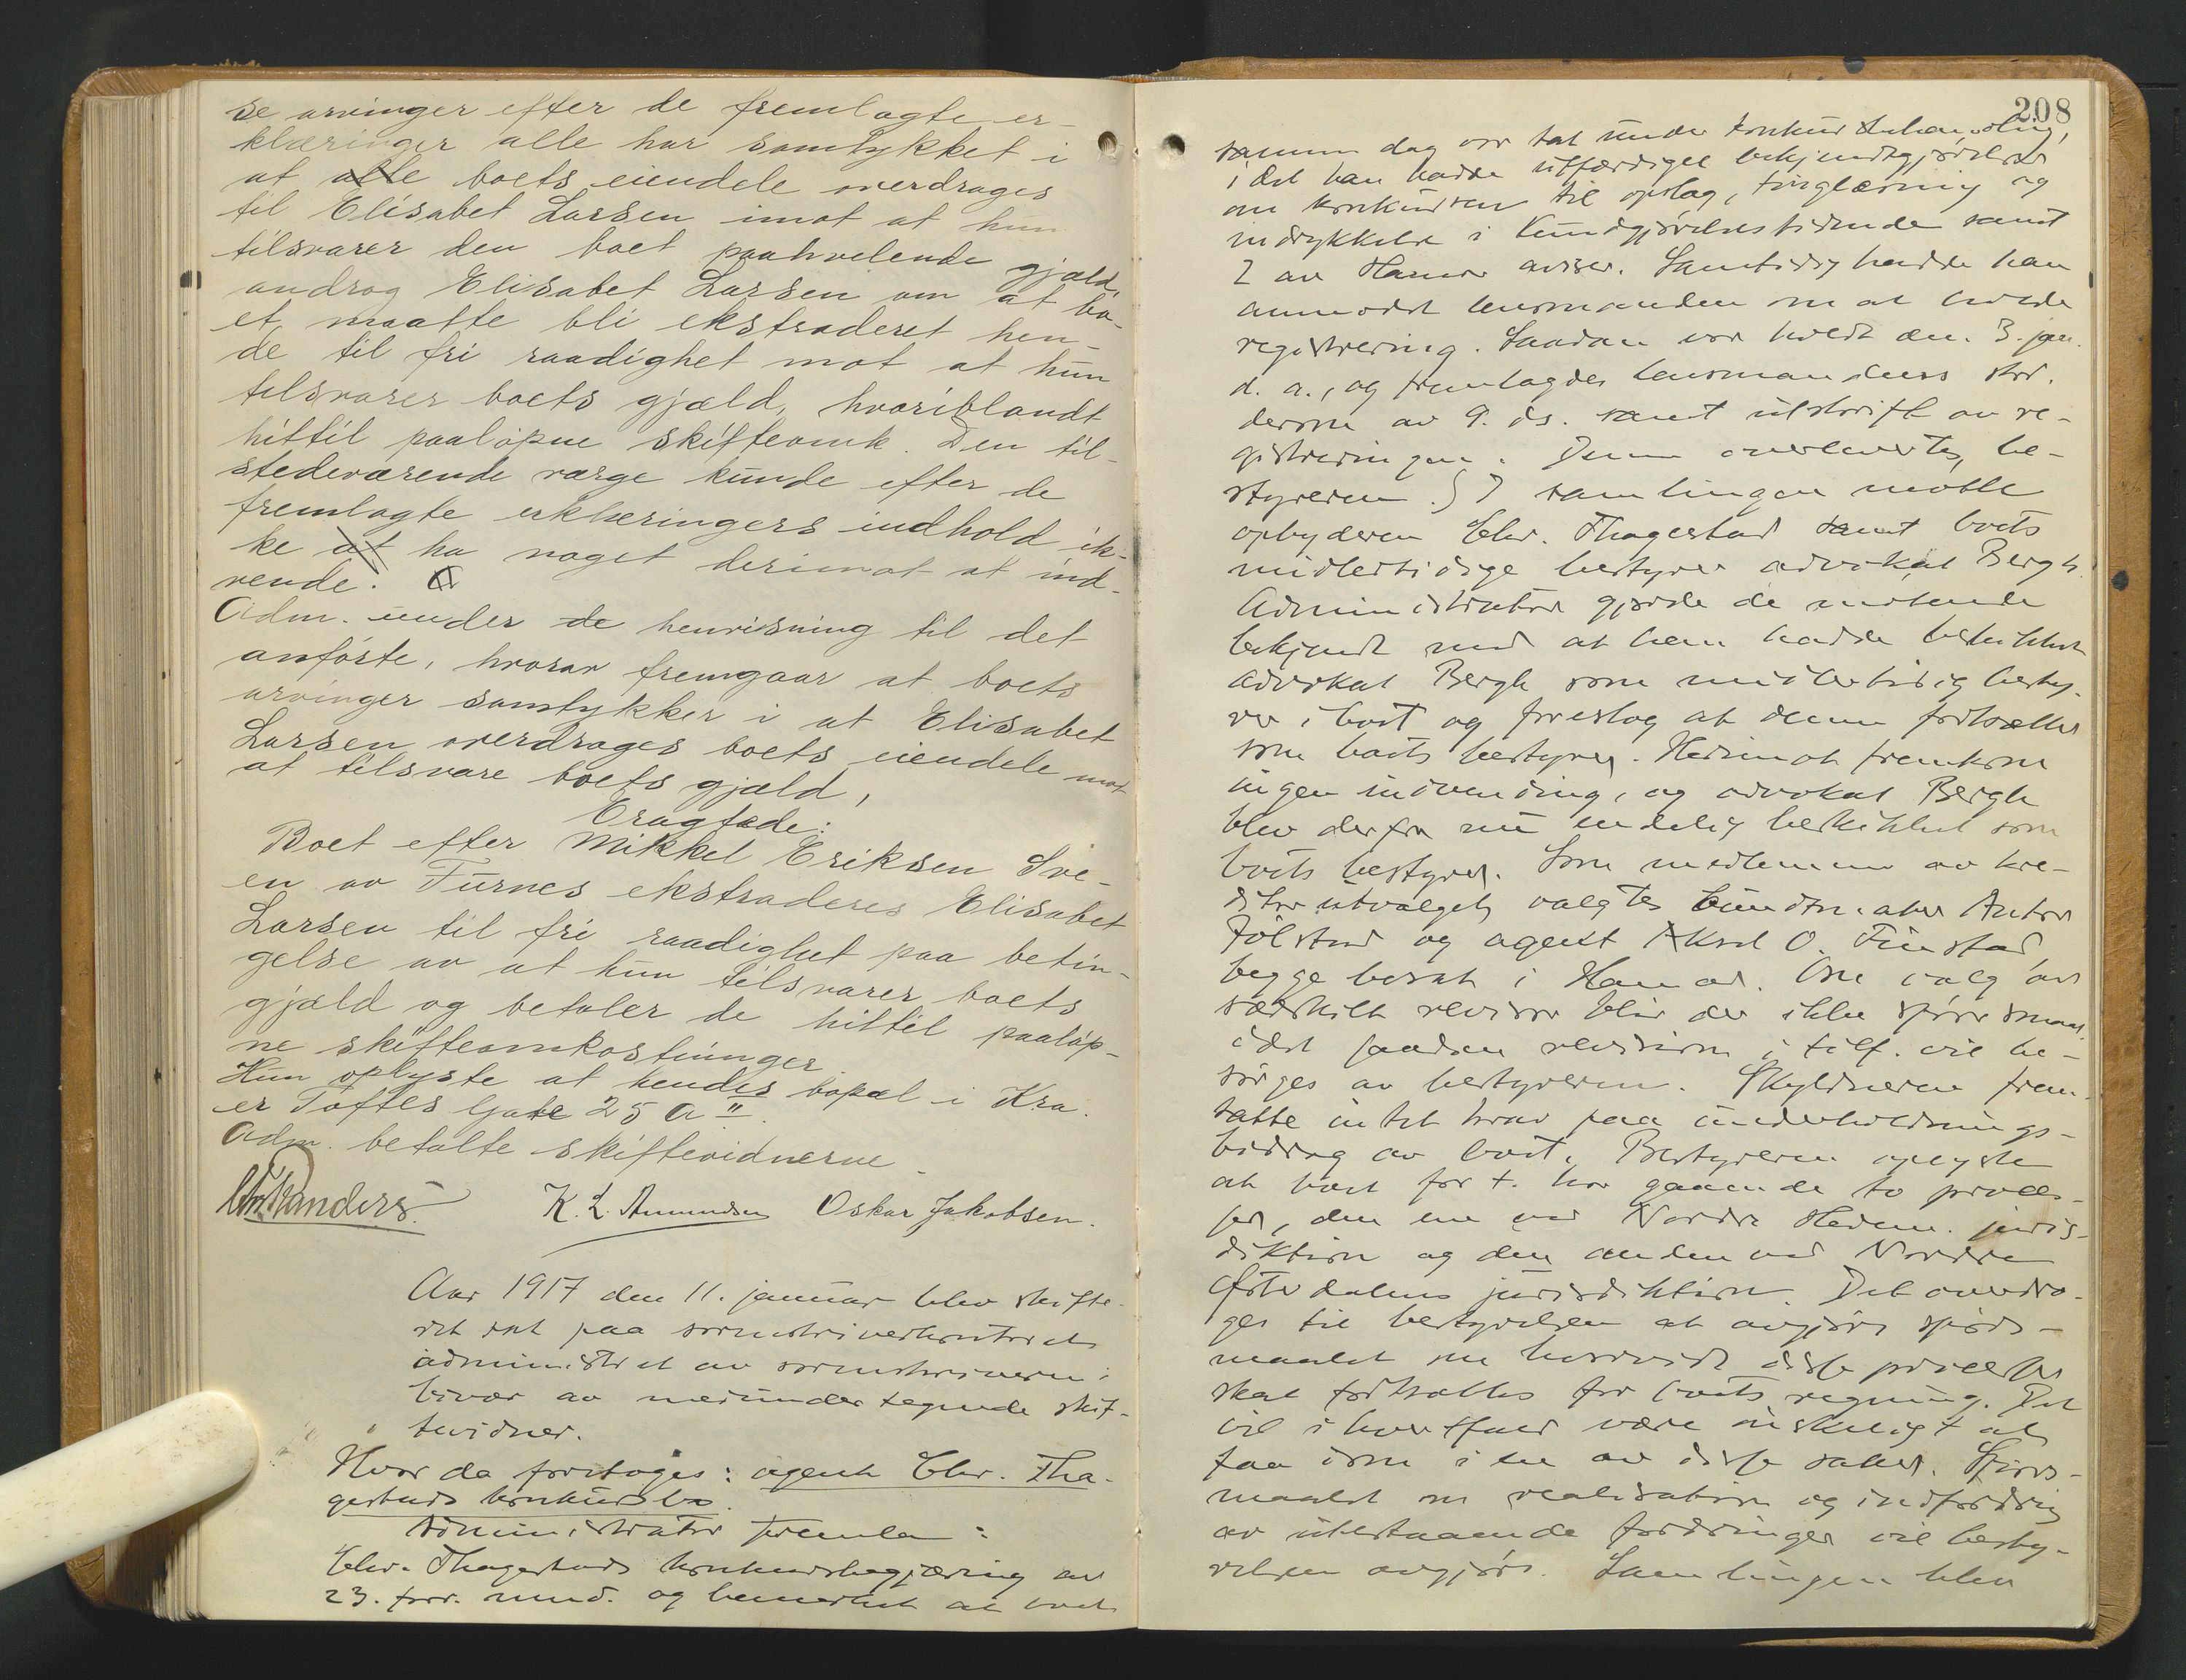 se arvinger efter de fremlagte er-
klæringer alle har samtykket i
at alle boets eiendele overdrages
til Elisabet Larsen imot at hun
tilsvarer den boet paahvilende gjæld,
androg Elisabet Larsen om at bo-
et maatte bli ekstraderet hen-
de til fri raadighet mot at hun
tilsvarer boets gjæld, hvoriblandt
hittil paaløpne skifteomk. Den til-
stedeværende værge kunde efter de
fremlagte erklæringers indhold ik-
ke at ha noget derimot at ind-
vende.
Adm. under de henvisning til det
anførte, hvorav fremgaar at boets
arvinger samtykker i at Elisabet
Larsen overdrages boets eiendele mot
at tilsvare boets gjæld,
Eragtede:
Boet efter Mikkel Eriksen Sve-
en av Furnes ekstraderes Elisabet
Larsen til fri raadighet paa betin-
gelse av at hun tilsvarer boets
gjæld og betaler de hittil paaløp-
ne skifteomkostninger
Hun oplyste at hendes bopæl i Kra.
er Toftes Gate 25 a II.
Adm. betalte skiftevidnerne.
Randers. K. L. Amundsen Oskar Jakobsen.
Aar 1917 den 11. januar blev skifte-
ret sat paa sorenskriverkontoret
administret av sorenskriveren i
bivær av nedundertegnede skif-
tevidner.
Hvor da foretoges: agent Chr. Tha-
gestads konkursbo.
Administrator fremla:
Chr. Thagestads konkursbegjæring av
23. forr. mnd. og bemerket at boet
208
samme dag var tat under konkursbehandling,
idet han hadde utfærdiget bekjendtgjørelse
om konkursen til opslag, tinglæsning og
indrykkelse i Kundgjørelsestidende samt
2 av Hamar aviser. Samtidig hadde han
anmodet lensmanden om at holde
registrering. Saadan var holdt den 3. jan.
d. a., og fremlagdes lensmandens
av 9. ds. samt utskrift av re-
gistreringen. Denne overleveres be-
styreren. I samlingen møtte
opbyderen Chr. Thagestad samt boets
midlertidige bestyrer advokat Bergh.
Administrator gjorde de møtende
bekjendt med at han hadde beskikket
advokat Bergh som midlertidig besty-
rer i boet og foreslog at denne fortsætter
som boets bestyrer. Herimot fremkom
ingen indvending, og advokat Bergh
blev derfor nu endelig beskikket som
boets bestyrer. Som medlemmer av kre-
ditorutvalget valgtes Anton
Jølstad og agent Aksel O. Finstad
begge bosat i Hamar. Om valg av
særskilt revisor blir der ikke spørsmaal
idet saadan revision i tilf. vil be-
sørges av bestyreren. Skyldneren frem-
satte intet krav paa underholdnings-
bidrag av boet. Bestyreren oplyste
at boet for t. har gaaende to proces-
ser, den ene ved Nordre Hedem. juris-
diktion og den anden ved Nordre
Østerdalens jurisdiktion. Det overdro-
ges til bestyrelsen at avgjøre spørs-
maalet om hvorvidt disse processer
skal fortsættes for boets regning. Det
vil i hvertfald være ønskeligt at
faa dom i en av disse saker. Spørs-
maalet om realisation og indfordring
av utestaaende fordringer vil besty-
relsen avgjøre. Samlingen blev